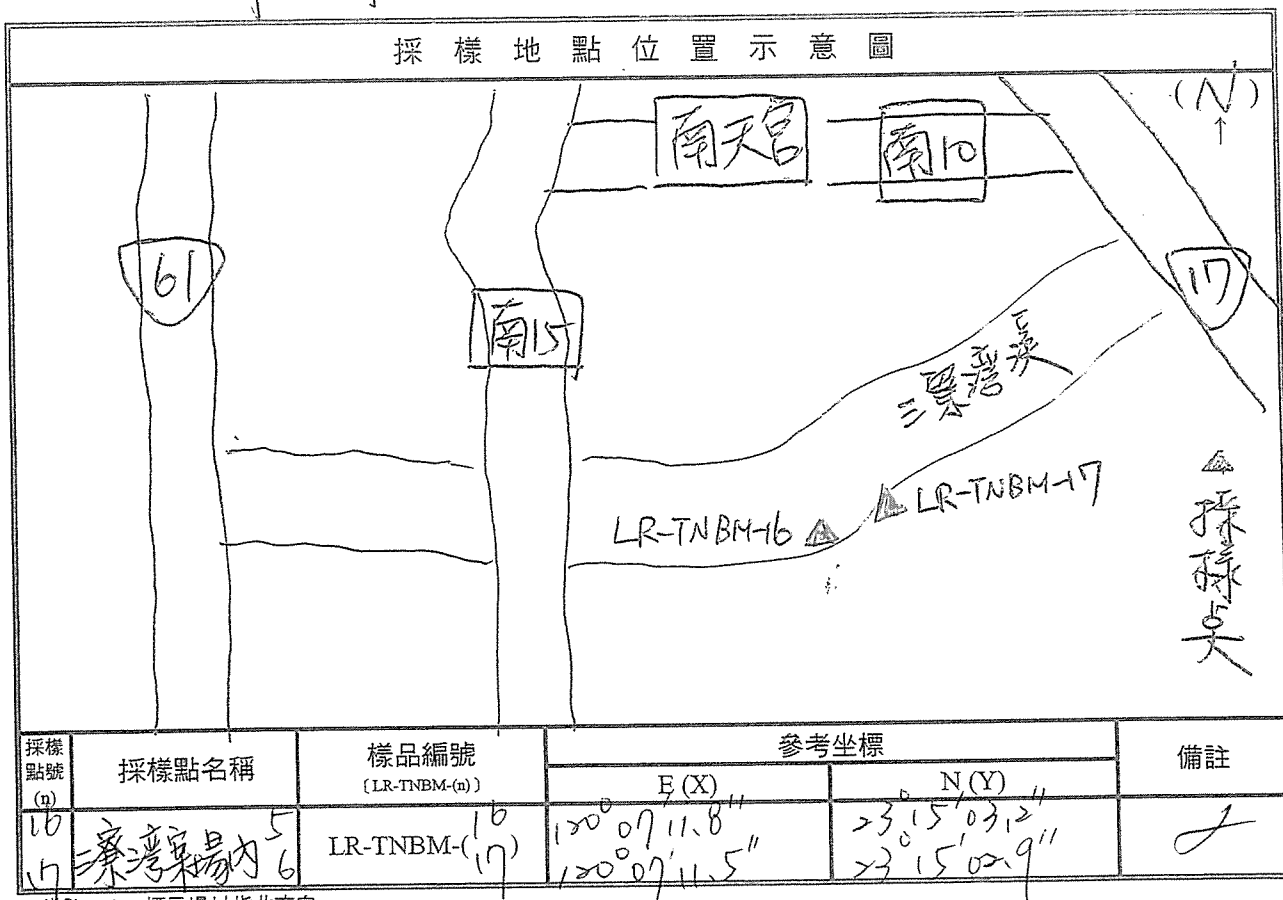 採樣地點位置示意圖
(N)
↑
南天宮
南10
61
17
南15
LR-TNBM-17
LR-TNBM-16
採樣點
採樣點號(n)
採樣點名稱
樣品編號
〔LR-TNBM-(n)〕
參考坐標
E (X)
N (Y)
備註
16
17
場內 5
6
LR-TNBM-(16
17)
120°07'11.8"
120°07'11.5"
23°15'03.2"
23°15'02.9"